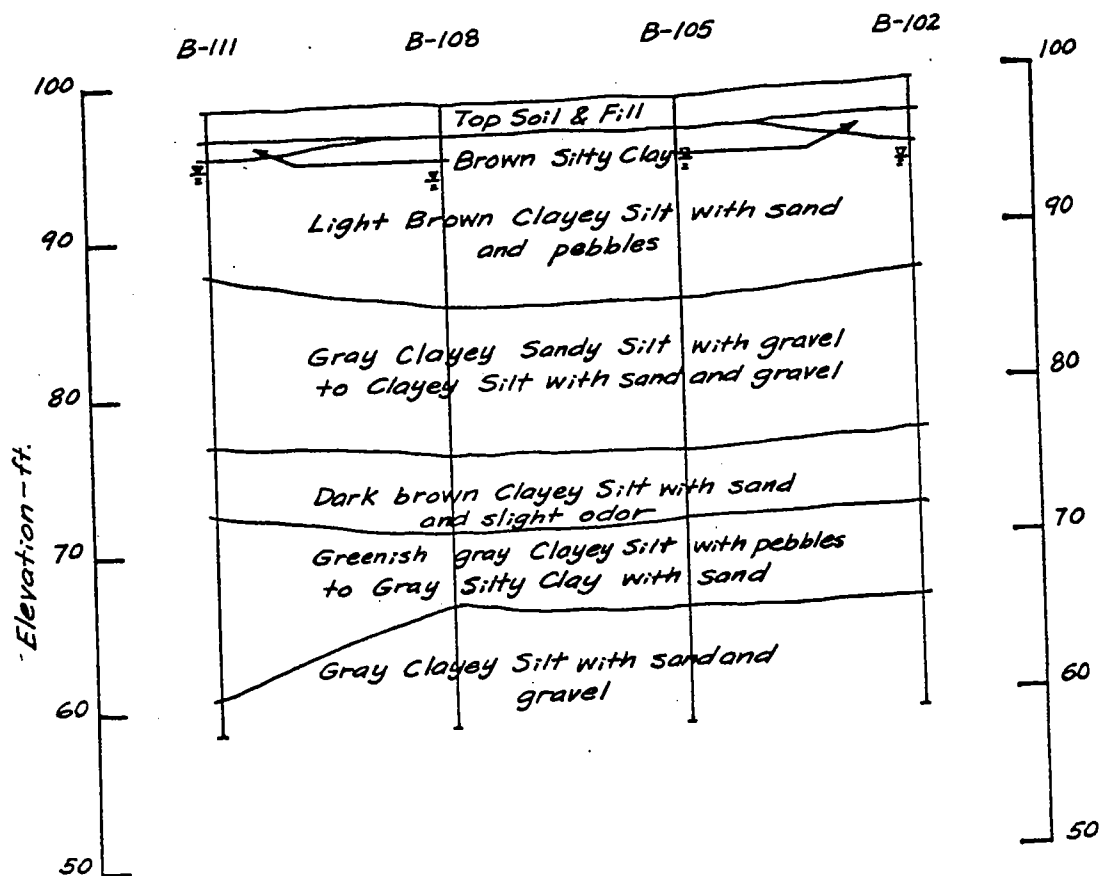 B-111
B-108
B-105
B-102
100
90
80
70
60
50
Elevation-ft.
Top Soil & Fill
Brown Silty Clay
Light Brown Clayey Silt with sand
and pebbles
Gray Clayey Sandy Silt with gravel
to Clayey Silt with sand and gravel
Dark brown Clayey Silt with sand
and slight odor
Greenish gray Clayey Silt with pebbles
to Gray Silty Clay with sand
Gray Clayey Silt with sand and
gravel
100
90
80
70
60
50